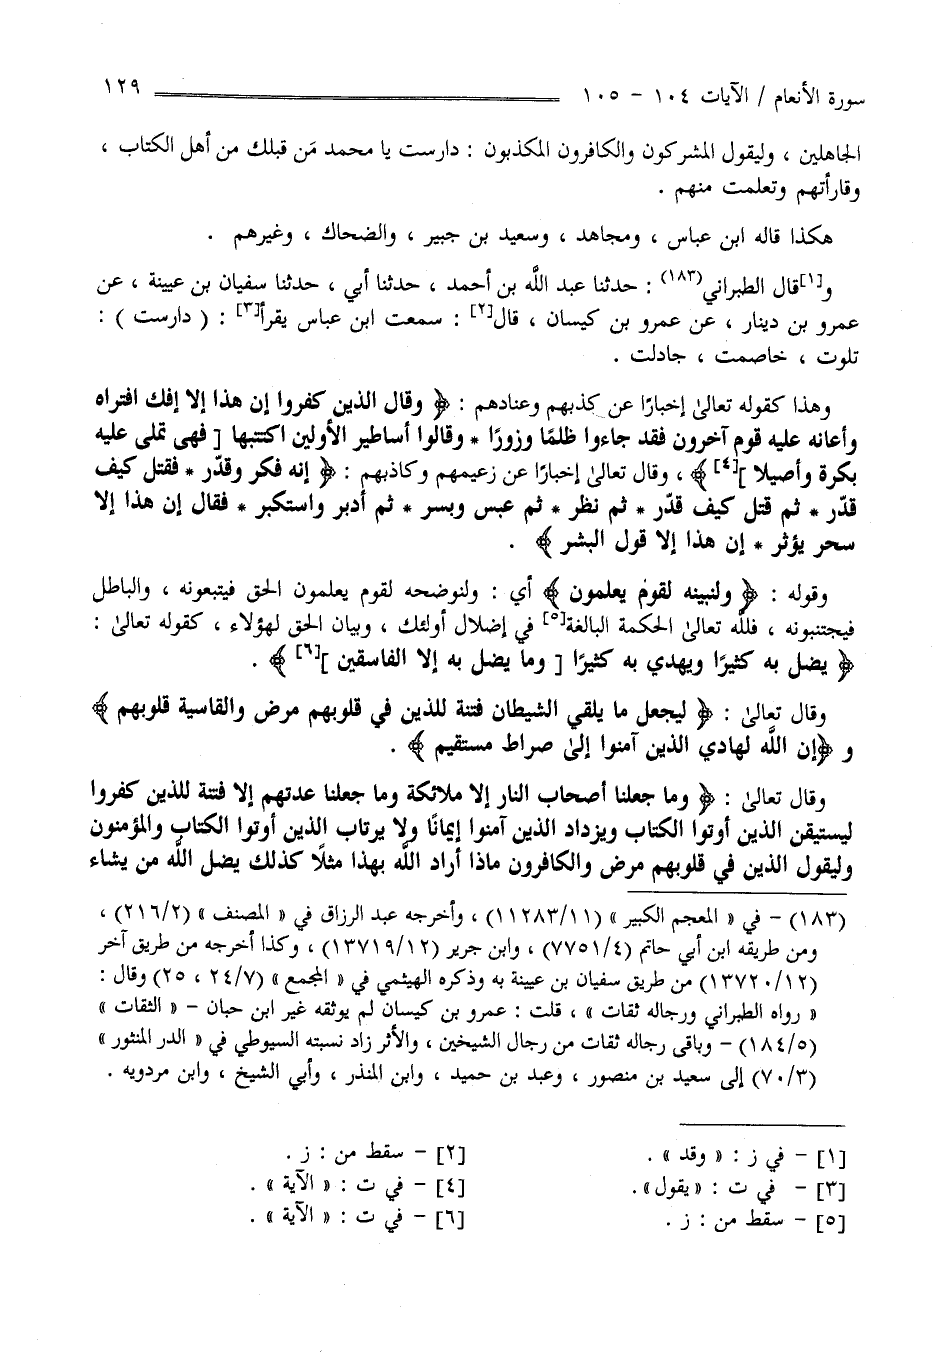 سورة الأنعام / الآيات ١٠٤ - ١٠٥ ١٢٩
الجاهلين ، وليقول المشركون والكافرون المكذبون : دارست يا محمد مَن قبلك من أهل الكتاب ،
وقارأتهم وتعلمت منهم .
هكذا قاله ابن عباس ، ومجاهد ، وسعيد بن جبير ، والضحاك ، وغيرهم .
و[١]قال الطبراني(١٨٣) : حدثنا عبد اللَّه بن أحمد ، حدثنا أبي ، حدثنا سفيان بن عيينة ، عن
عمرو بن دينار ، عن عمرو بن كيسان ، قال[٢] : سمعت ابن عباس يقرأ[٣] : ( دارست ) :
تلوت ، خاصمت ، جادلت .
وهذا كقوله تعالىٰ إخبارًا عن كذبهم وعنادهم : ﴿ وقال الذين كفروا إن هذا إلا إفك افتراه
وأعانه عليه قوم آخرون فقد جاءوا ظلمًا وزورًا * وقالوا أساطير الأولين اكتتبها [ فهى تملى عليه
بكرة وأصيلا ][٤] ﴾ ، وقال تعالىٰ إخبارًا عن زعيمهم وكاذبهم : ﴿ إنه فكر وقدّر * فقتل كيف
قدّر * ثم قتل كيف قدّر * ثم نظر * ثم عبس وبسر * ثم أدبر واستكبر * فقال إن هذا إلا
سحر يؤثر * إن هذا إلا قول البشر ﴾ .
وقوله : ﴿ ولنبينه لقوم يعلمون ﴾ أي : ولنوضحه لقوم يعلمون الحق فيتبعونه ، والباطل
فيجتنبونه ، فللَّه تعالىٰ الحكمة البالغة[٥] في إضلال أولئك ، وبيان الحق لهؤلاء ، كقوله تعالىٰ :
﴿ يضل به كثيرًا ويهدي به كثيرًا [ وما يضل به إلا الفاسقين ][٦] ﴾ .
وقال تعالىٰ : ﴿ ليجعل ما يلقي الشيطان فتنة للذين في قلوبهم مرض والقاسية قلوبهم ﴾
و ﴿إن اللَّه لهادي الذين آمنوا إلىٰ صراط مستقيم ﴾ .
وقال تعالىٰ : ﴿ وما جعلنا أصحاب النار إلا ملائكة وما جعلنا عدتهم إلا فتنة للذين كفروا
ليستيقن الذين أوتوا الكتاب ويزداد الذين آمنوا إيمانًا ولا يرتاب الذين أوتوا الكتاب والمؤمنون
وليقول الذين في قلوبهم مرض والكافرون ماذا أراد اللَّه بهذا مثلًا كذلك يضل اللَّه من يشاء
(١٨٣) - في « المعجم الكبير » (١١٢٨٣/١١) ، وأخرجه عبد الرزاق في « المصنف » (٢١٦/٢) ،
ومن طريقه ابن أبي حاتم (٧٧٥١/٤) ، وابن جرير (١٣٧١٩/١٢) ، وكذا أخرجه من طريق آخر
(١٣٧٢٠/١٢) من طريق سفيان بن عيينة به وذكره الهيثمي في « المجمع » (٢٤/٧ ، ٢٥) وقال :
« رواه الطبراني ورجاله ثقات » ، قلت : عمرو بن كيسان لم يوثقه غير ابن حبان - « الثقات »
(١٨٤/٥) - وباقى رجاله ثقات من رجال الشيخين ، والأثر زاد نسبته السيوطي في « الدر المنثور »
(٧٠/٣) إلى سعيد بن منصور ، وعبد بن حميد ، وابن المنذر ، وأبي الشيخ ، وابن مردويه .
[١] - في ز : « وقد » . [٢] - سقط من : ز .
[٣] - في ت : «يقول» . [٤] - في ت : « الآية » .
[٥] - سقط من : ز . [٦] - في ت : « الآية » .